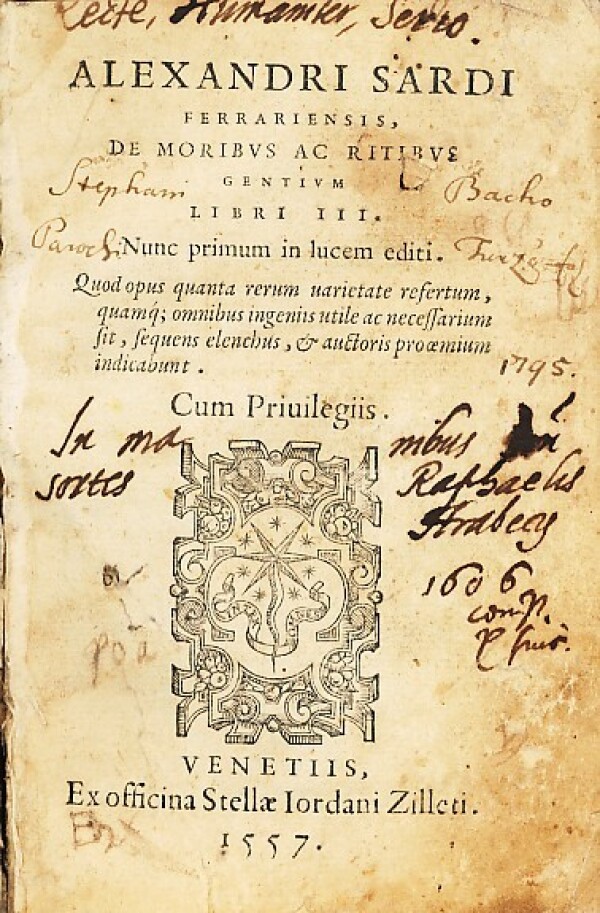 Recte, Humaniter, Serio.
ALEXANDRI SARDI
FERRARIENSIS,
DE MORIBVS AC RITIBVS
GENTIVM
Stephani Bacho
LIBRI III.
Parochi
Nunc primum in lucem editi.
Quod opus quanta rerum uarietate refertum,
quamq́; omnibus ingeniis utile ac necessarium
sit, sequens elenchus, & auctoris prooemium
indicabunt.
1795.
Cum Priuilegiis.
In ma nibus
sortes Raphaelis
1606
comp.
VENETIIS,
Ex officina Stellæ Iordani Zilleti.
1557.